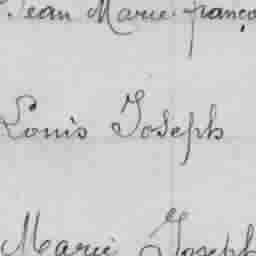 Jean Marie franço
Louis Joseph
Marie Joseph